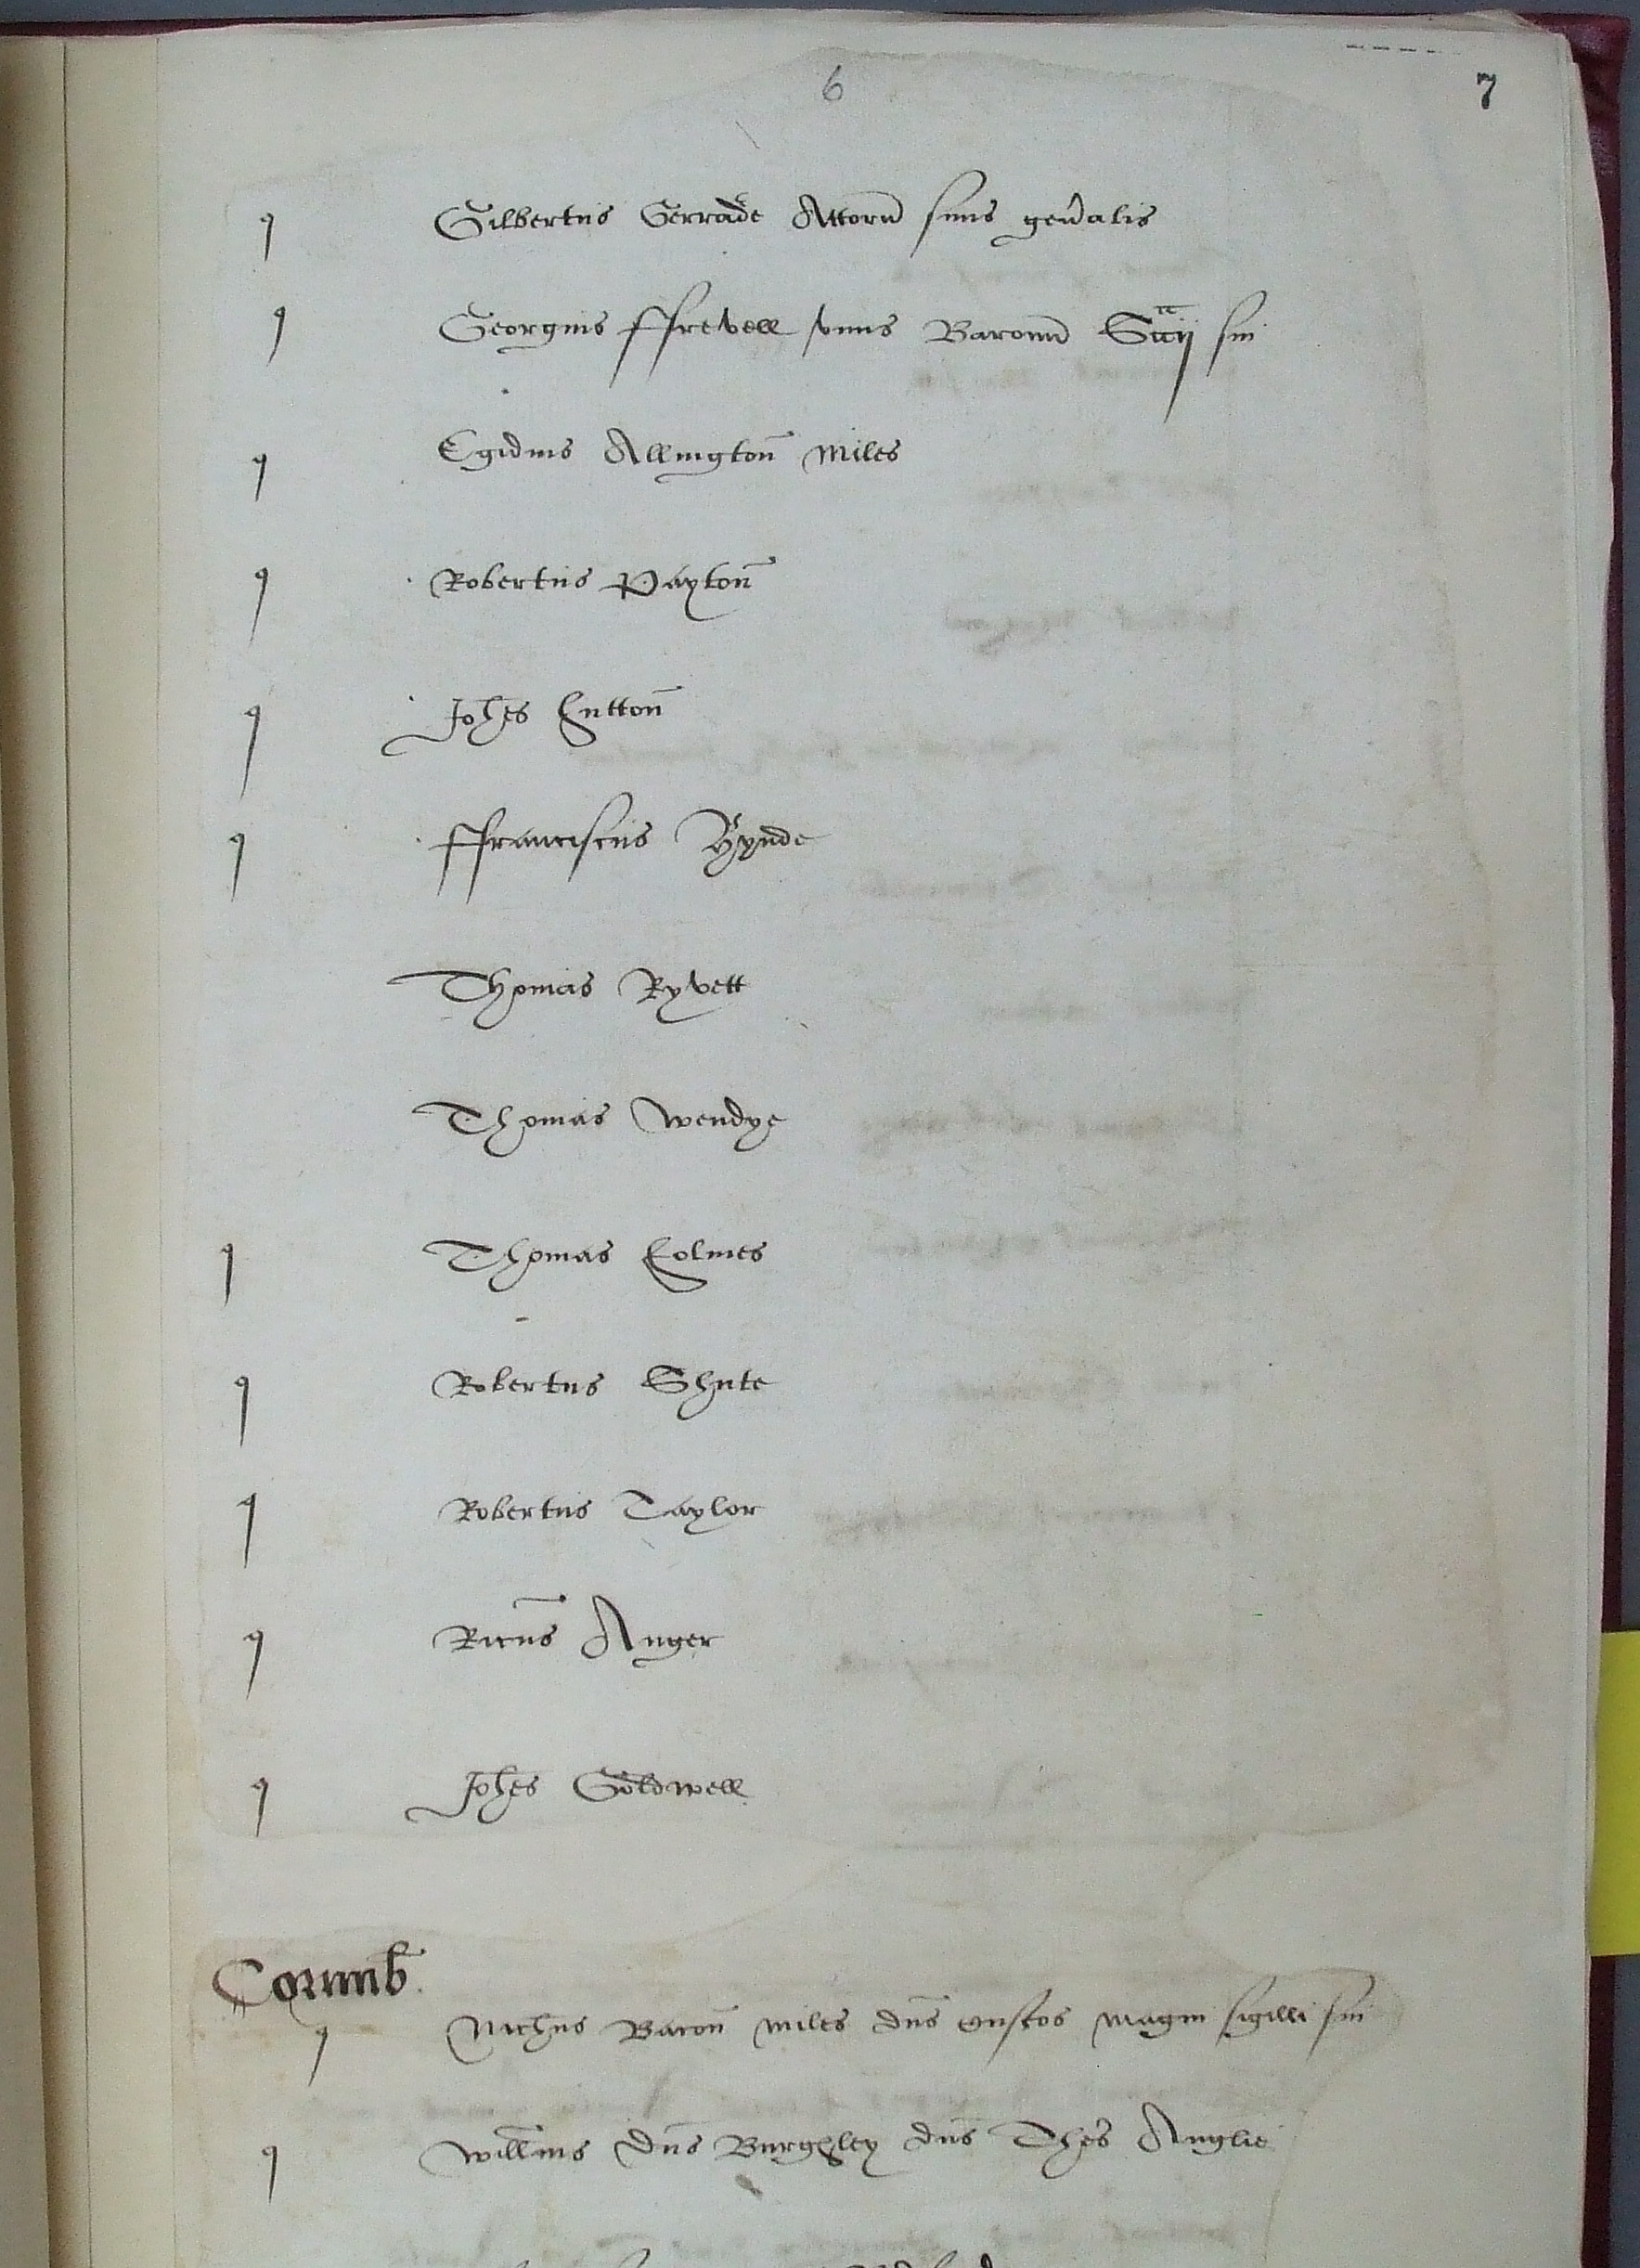 6
7
Gilbertus Gerrade Attorn suus gen'alis
Georgius ffrevell vnus Baronu Sccij sui
Egidius Allington miles
Robertus Payton
Johes Cutton
ffranciscus Hynde
Thomas Ryvett
Thomas Wendye
Thomas Colmes
Robertus Shute
Robertus Taylor
Ricus Anger
Johes Goldwell
Cornub
Nichus Bacon miles dns Custos magni sigilli sui
Willms dns Burghley dns Thes Anglie